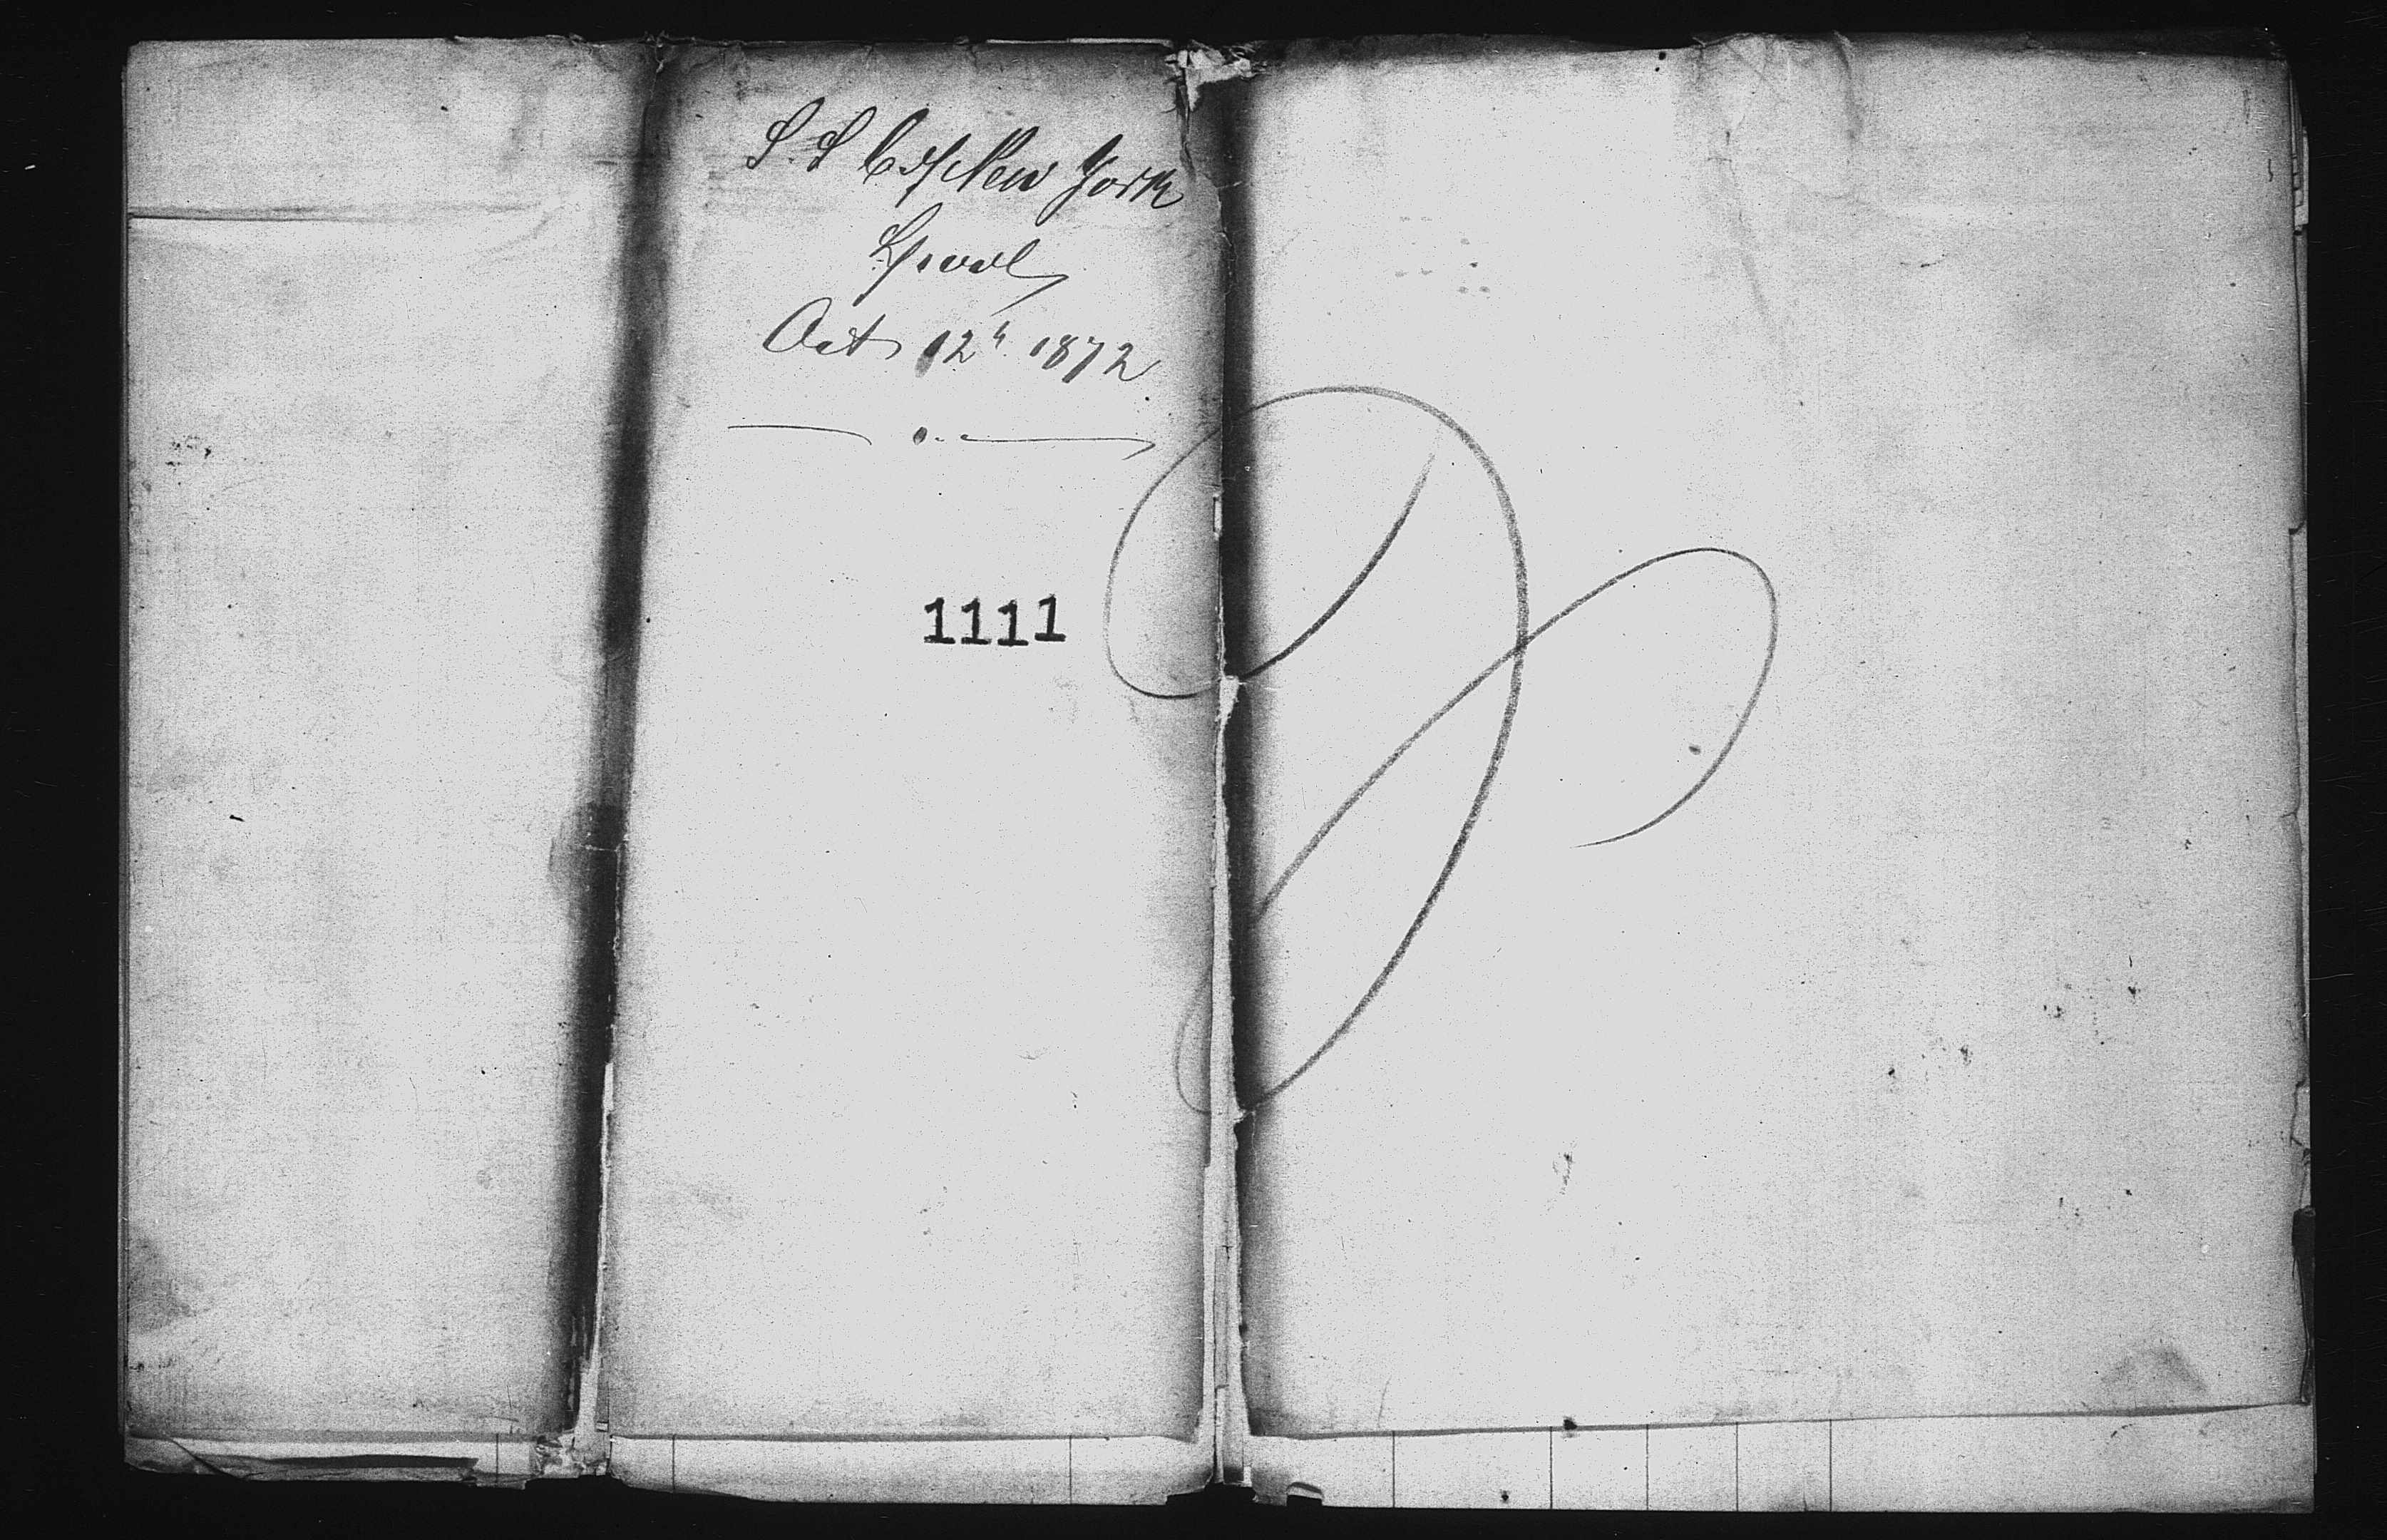 S.S C. of New York
Lpool
Oct 12th 1872
1111